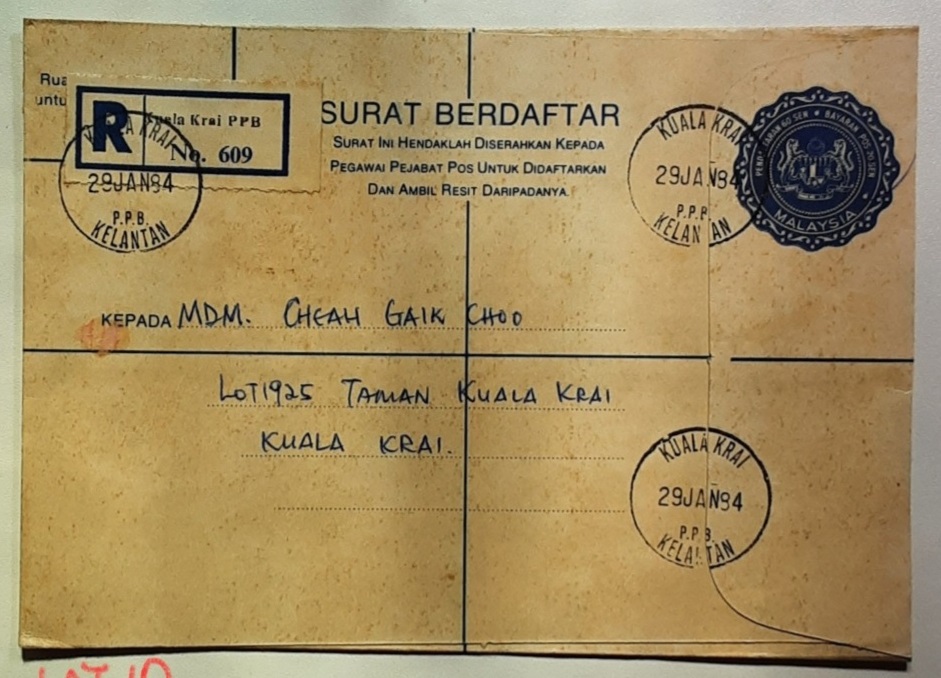 Rua
untu
R
Kuala Krai PPB
No. 609
SURAT BERDAFTAR
SURAT INI HENDAKLAH DISERAHKAN KEPADA
PEGAWAI PEJABAT POS UNTUK DIDAFTARKAN
DAN AMBIL RESIT DARIPADANYA.
KUALA KRAI
29JAN84
P.P.B.
KELANTAN
KUALA KRAI
29JAN84
P.P.B.
KELANTAN
BAYARAN POS 20 SEN
MALAYSIA
KEPADA MDM. CHEAH GAIK CHOO
LOT 1925 TAMAN KUALA KRAI
KUALA KRAI.
KUALA KRAI
29JAN84
P.P.B.
KELANTAN
LOT 10